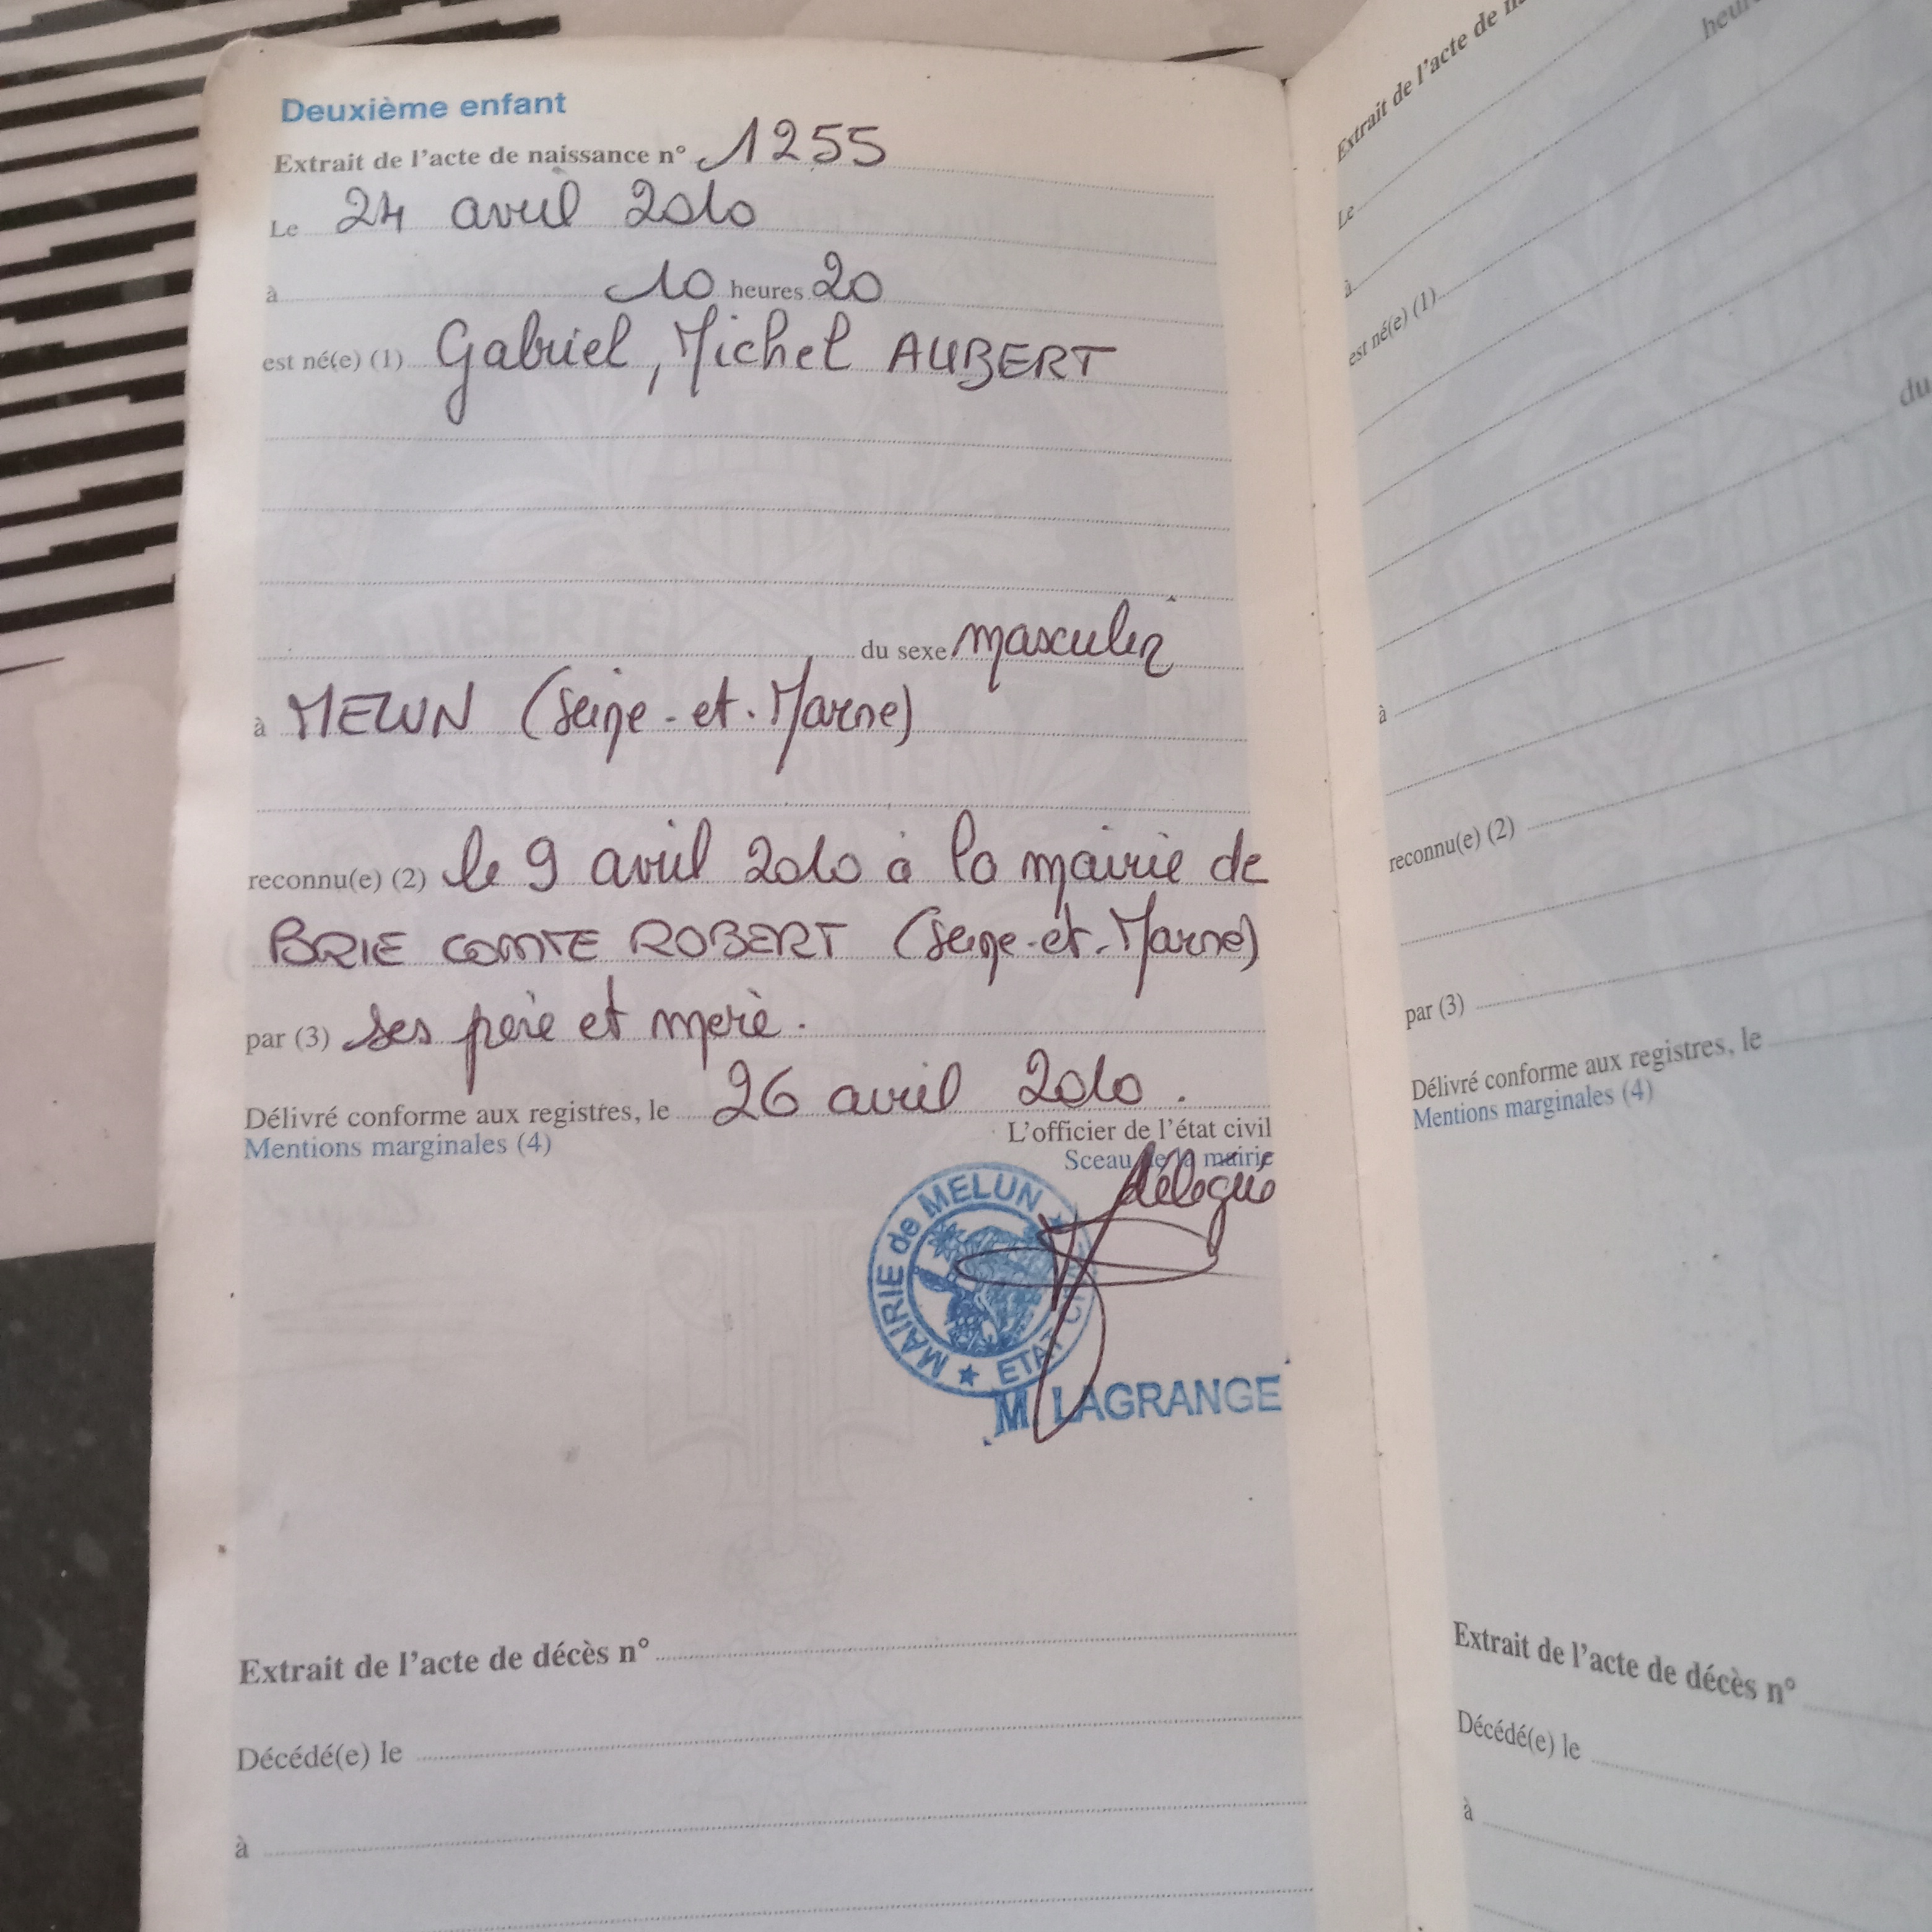 Deuxième enfant
Extrait de l'acte de naissance n° 1255
Le 24 avril 2010
à 10 heures 20
est né(e) (1) Gabriel, Michel AUBERT
du sexe masculin
à MELUN (Seine-et-Marne)
reconnu(e) (2) le 9 avril 2010 à la mairie de
BRIE COMTE ROBERT (Seine-et-Marne)
par (3) ses père et mère.
Délivré conforme aux registres, le 26 avril 2010.
Mentions marginales (4)
L'officier de l'état civil
Sceau de la mairie
délégué
MAIRIE de MELUN ★ ETAT CIVIL ★
M. LAGRANGE
Extrait de l'acte de décès n°
Décédé(e) le
à
LIBERTE EGALITE
FRATERNITE
Extrait de l'acte de
heur
Le
à
est né(e) (1)
du
à
LIBERTE
FRATERNI
reconnu(e) (2)
par (3)
Délivré conforme aux registres, le
Mentions marginales (4)
Extrait de l'acte de décès n°
Décédé(e) le
à